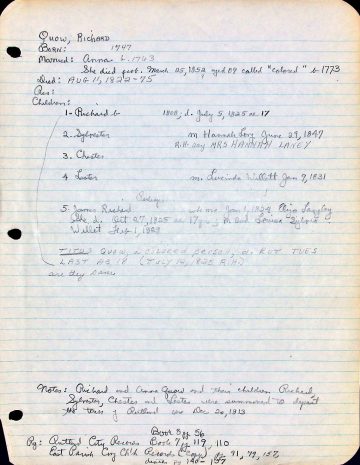 Quow, Richard
Born: 1747
Married: Anna b. 1763
She died prob. March 25, 1852 aged 89 called "colored" b 1773
Died: Aug 11, 1822-75
Res:
Children:
1- Richard b 1808, d. July 5, 1825 ae. 17
2. Sylvester m Hannah Long June 29, 1847
MRS HANNAH LANEY
3. Chester
4 Lester m. Lucinda Willitt Jan 9, 1831
5. James Richard Jan 1, 1824
She d. Oct 27, 1825 ae 17 Louisa
Willitt Feb 1, 1829
TITUS QUOW, a colored person, d. RUT TUES
LAST AE 18
are they same
Notes: Richard and Anna Quow and their children Richard,
Sylvester, Chester and Lester were summoned to depart
the town of Rutland Dec 20, 1813
Book 5 pg 56
Pg: Rutland City Records Book 7 pg 119, 110
East Parish Cong Ch'h Records (Copy) pg 91, 79, 157